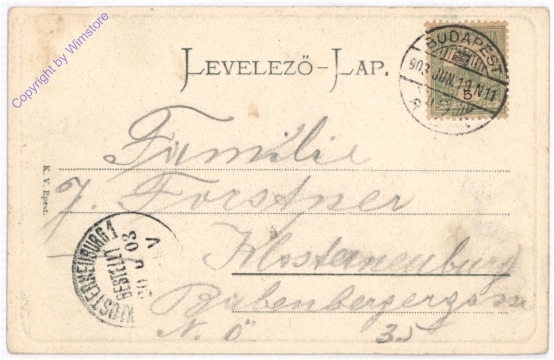 Copyright by Wimstore
LEVELEZŐ-LAP.
BUDAPEST
903 JUN. 19. N11
5
Familie
J. Forstner
Klosterneuburg
Babenbergergasse
N. Ö 35
K. V. Bpest.
KLOSTERNEUBURG 1
BESTELLT
20 6 03
V